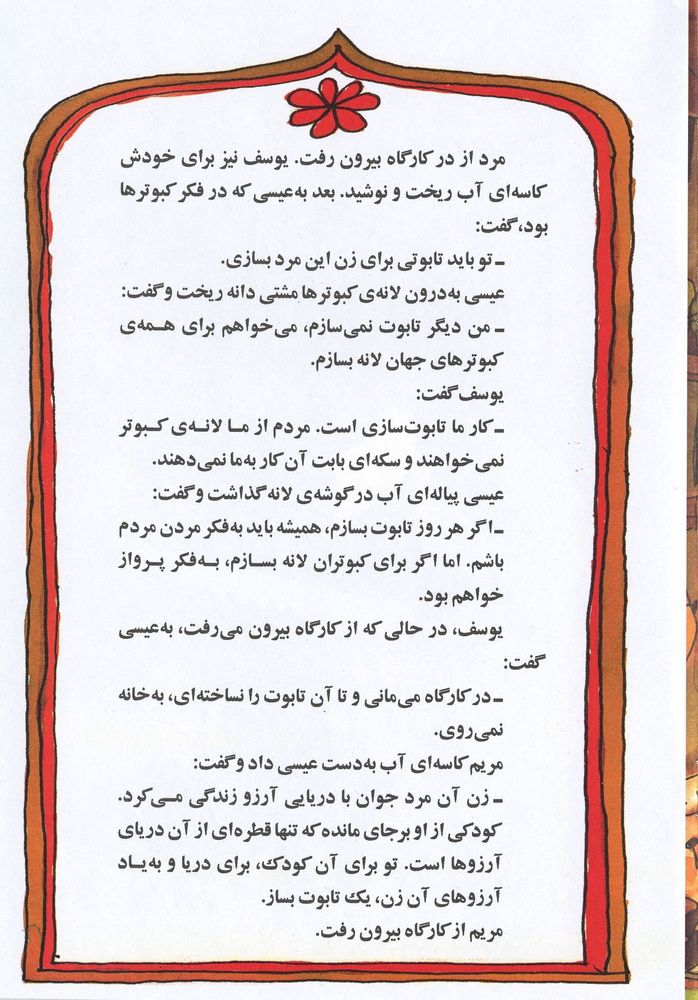 مرد از در کارگاه بیرون رفت. یوسف نیز برای خودش
کاسه‌ای آب ریخت و نوشید. بعد به‌عیسی که در فکر کبوترها
بود، گفت:
ـ تو باید تابوتی برای زن این مرد بسازی.
عیسی به‌درون لانه‌ی کبوترها مشتی دانه ریخت و گفت:
ـ من دیگر تابوت نمی‌سازم، می‌خواهم برای همـه‌ی
کبوترهای جهان لانه بسازم.
یوسف گفت:
ـ کار ما تابوت‌سازی است. مردم از مـا لانـه‌ی کـبوتر
نمی‌خواهند و سکه‌ای بابت آن کار به‌ما نمی‌دهند.
عیسی پیاله‌ای آب در گوشه‌ی لانه گذاشت و گفت:
ـ اگر هر روز تابوت بسازم، همیشه باید به‌فکر مردن مردم
باشم. اما اگر برای کبوتران لانه بسـازم، بـه‌فکر پـرواز
خواهم بود.
یوسف، در حالی که از کارگاه بیرون می‌رفت، به‌عیسی
گفت:
ـ در کارگاه می‌مانی و تا آن تابوت را نساخته‌ای، به‌خانه
نمی‌روی.
مریم کاسه‌ای آب به‌دست عیسی داد و گفت:
ـ زن آن مرد جوان با دریایی آرزو زندگی مـی‌کرد.
کودکی از او برجای مانده که تنها قطره‌ای از آن دریای
آرزوها است. تو برای آن کودک، برای دریا و به‌یـاد
آرزوهای آن زن، یک تابوت بساز.
مریم از کارگاه بیرون رفت.